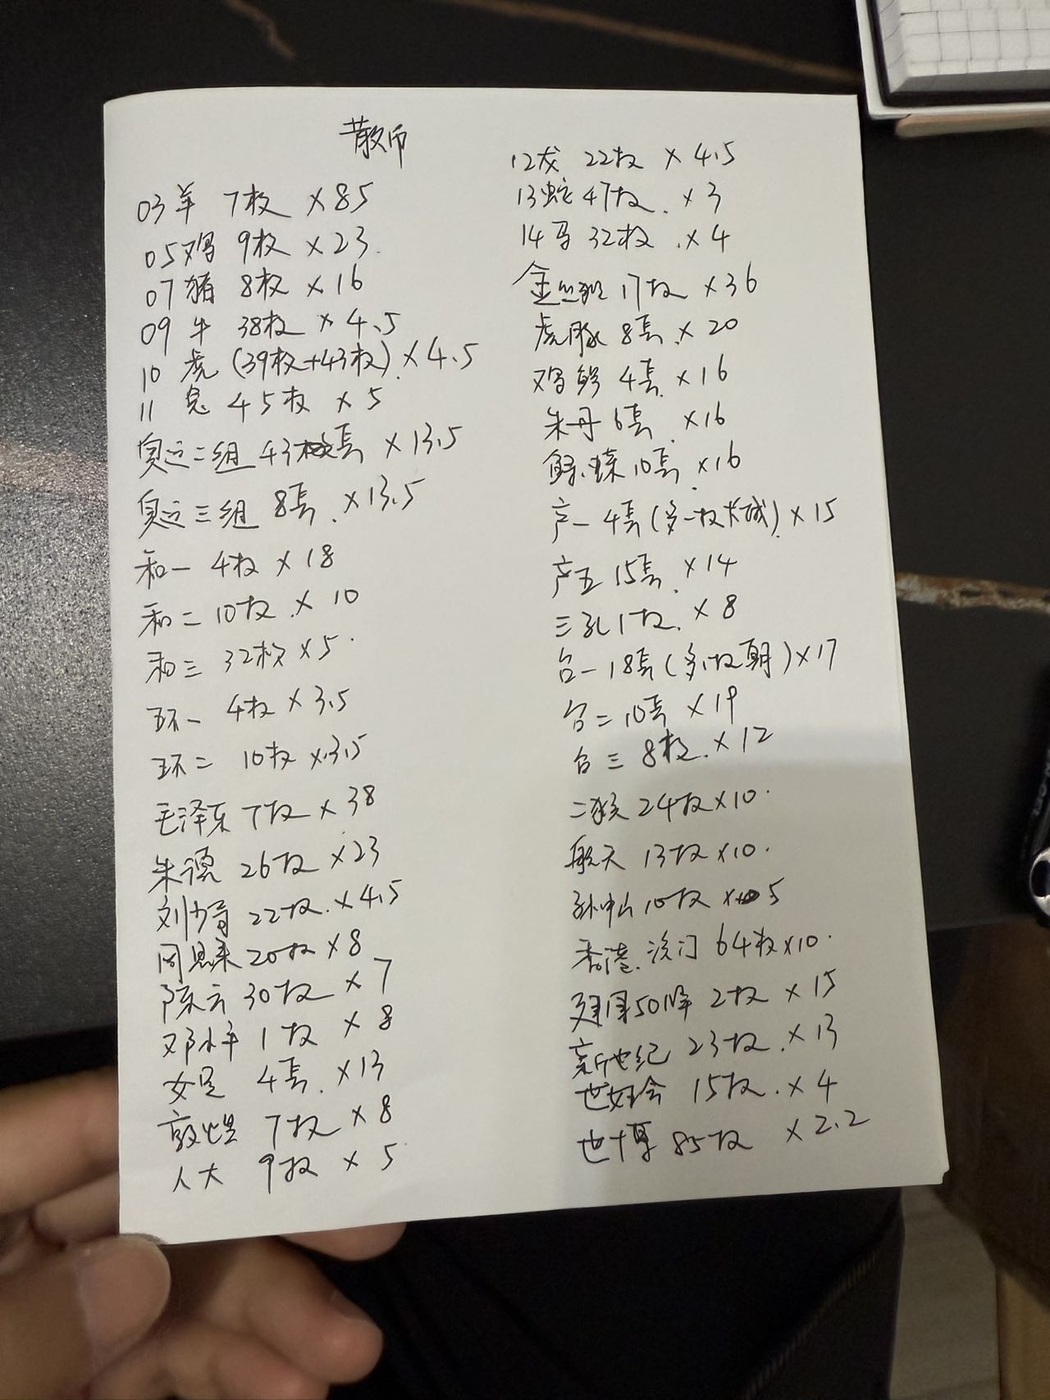 散币
03羊 7枚 ×85
05鸡 9枚 ×23.
07猪 8枚 ×16
09 牛 38枚 ×4.5
10 虎 (39枚+43枚).×4.5
11 兔 45枚 ×5
奥运二组 43套 ×13.5
奥运三组 8套.×13.5
和一 4枚 ×18
和二 10枚.×10
和三 32枚 ×5.
环一 4枚 ×3.5
环二 10枚 ×3.5
毛泽东 7枚 ×38
朱德 26枚 ×23
刘少奇 22枚.×4.5
周恩来 20枚 ×8
陈云 30枚 ×7
邓小平 1枚 ×8
女足 4套.×13
敦煌 7枚 ×8
人大 9枚 ×5
12龙 22枚 ×4.5
13蛇 47枚.×3
14马 32枚.×4
金丝猴 17枚 ×36
虎豚 8套.×20
鸡鲟 4套.×16
朱丹 6套.×16
10套.×16
产一 4套(多一枚长城).×15
产五 15套.×14
三孔 1枚.×8
台一 18套(多1枚朝)×17
台二 10套 ×19
台三 8枚.×12
二猴 24枚×10.
航天 13枚×10.
孙中山 10枚 ×5
香港.澳门 64枚×10.
建国50年 2枚 ×15
新世纪 23枚.×13
世妇会 15枚.×4
世博 85枚 ×2.2